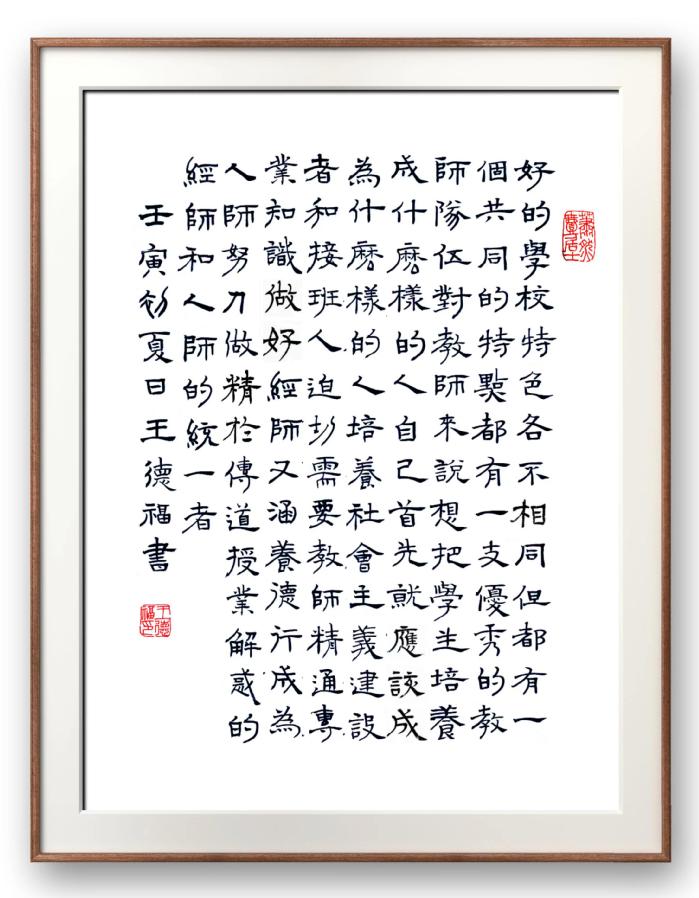 好的學校特色各不相同但都有一
個共同的特點都有一支優秀的教
師隊伍對教師來說想把學生培養
成什麼樣的人自己首先就應該成
為什麼樣的人培養社會主義建設
者和接班人迫切需要教師精通專
業知識做好經師又涵養德行成為
人師努力做精於傳道授業解惑的
經師和人師的統一者
壬寅初夏日王德福書
王德福印